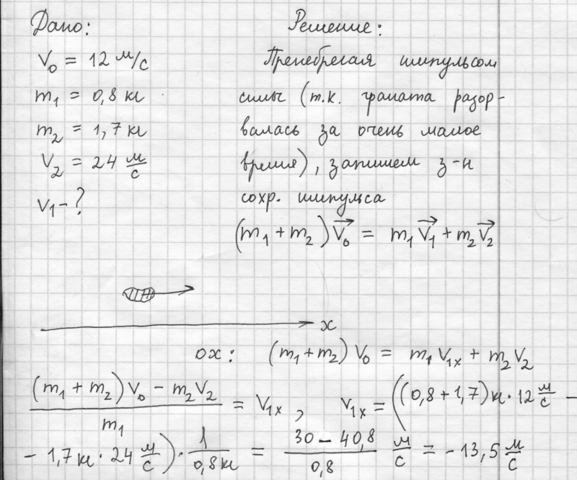 Дано:
V₀ = 12 м/с
m₁ = 0,8 кг
m₂ = 1,7 кг
V₂ = 24 м/с
V₁ - ?
Решение:
Пренебрегая импульсом
силы (т.к. граната разор-
валась за очень малое
время), запишем з-н
сохр. импульса
(m₁ + m₂) V₀⃗ = m₁ V₁⃗ + m₂ V₂⃗
x
ох: (m₁ + m₂) V₀ = m₁ V₁ₓ + m₂ V₂
((m₁ + m₂) V₀ - m₂ V₂) / m₁ = V₁ₓ , V₁ₓ = ((0,8 + 1,7) кг · 12 м/с -
- 1,7 кг · 24 м/с) · 1/0,8 кг = (30 - 40,8)/0,8 м/с = - 13,5 м/с